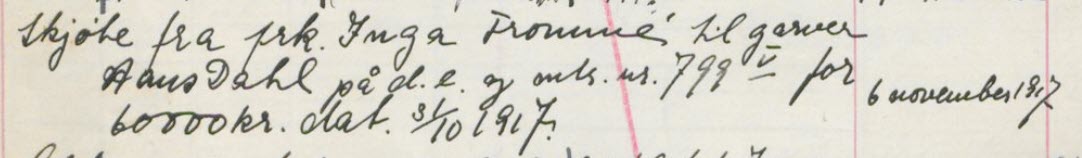 Skjøte fra frk. Inga Tromme, til garver
Hans Dahl på d.e. og mtr. nr. 799 V for
60000 kr. dat. 31/10 1917.
6 november 1917